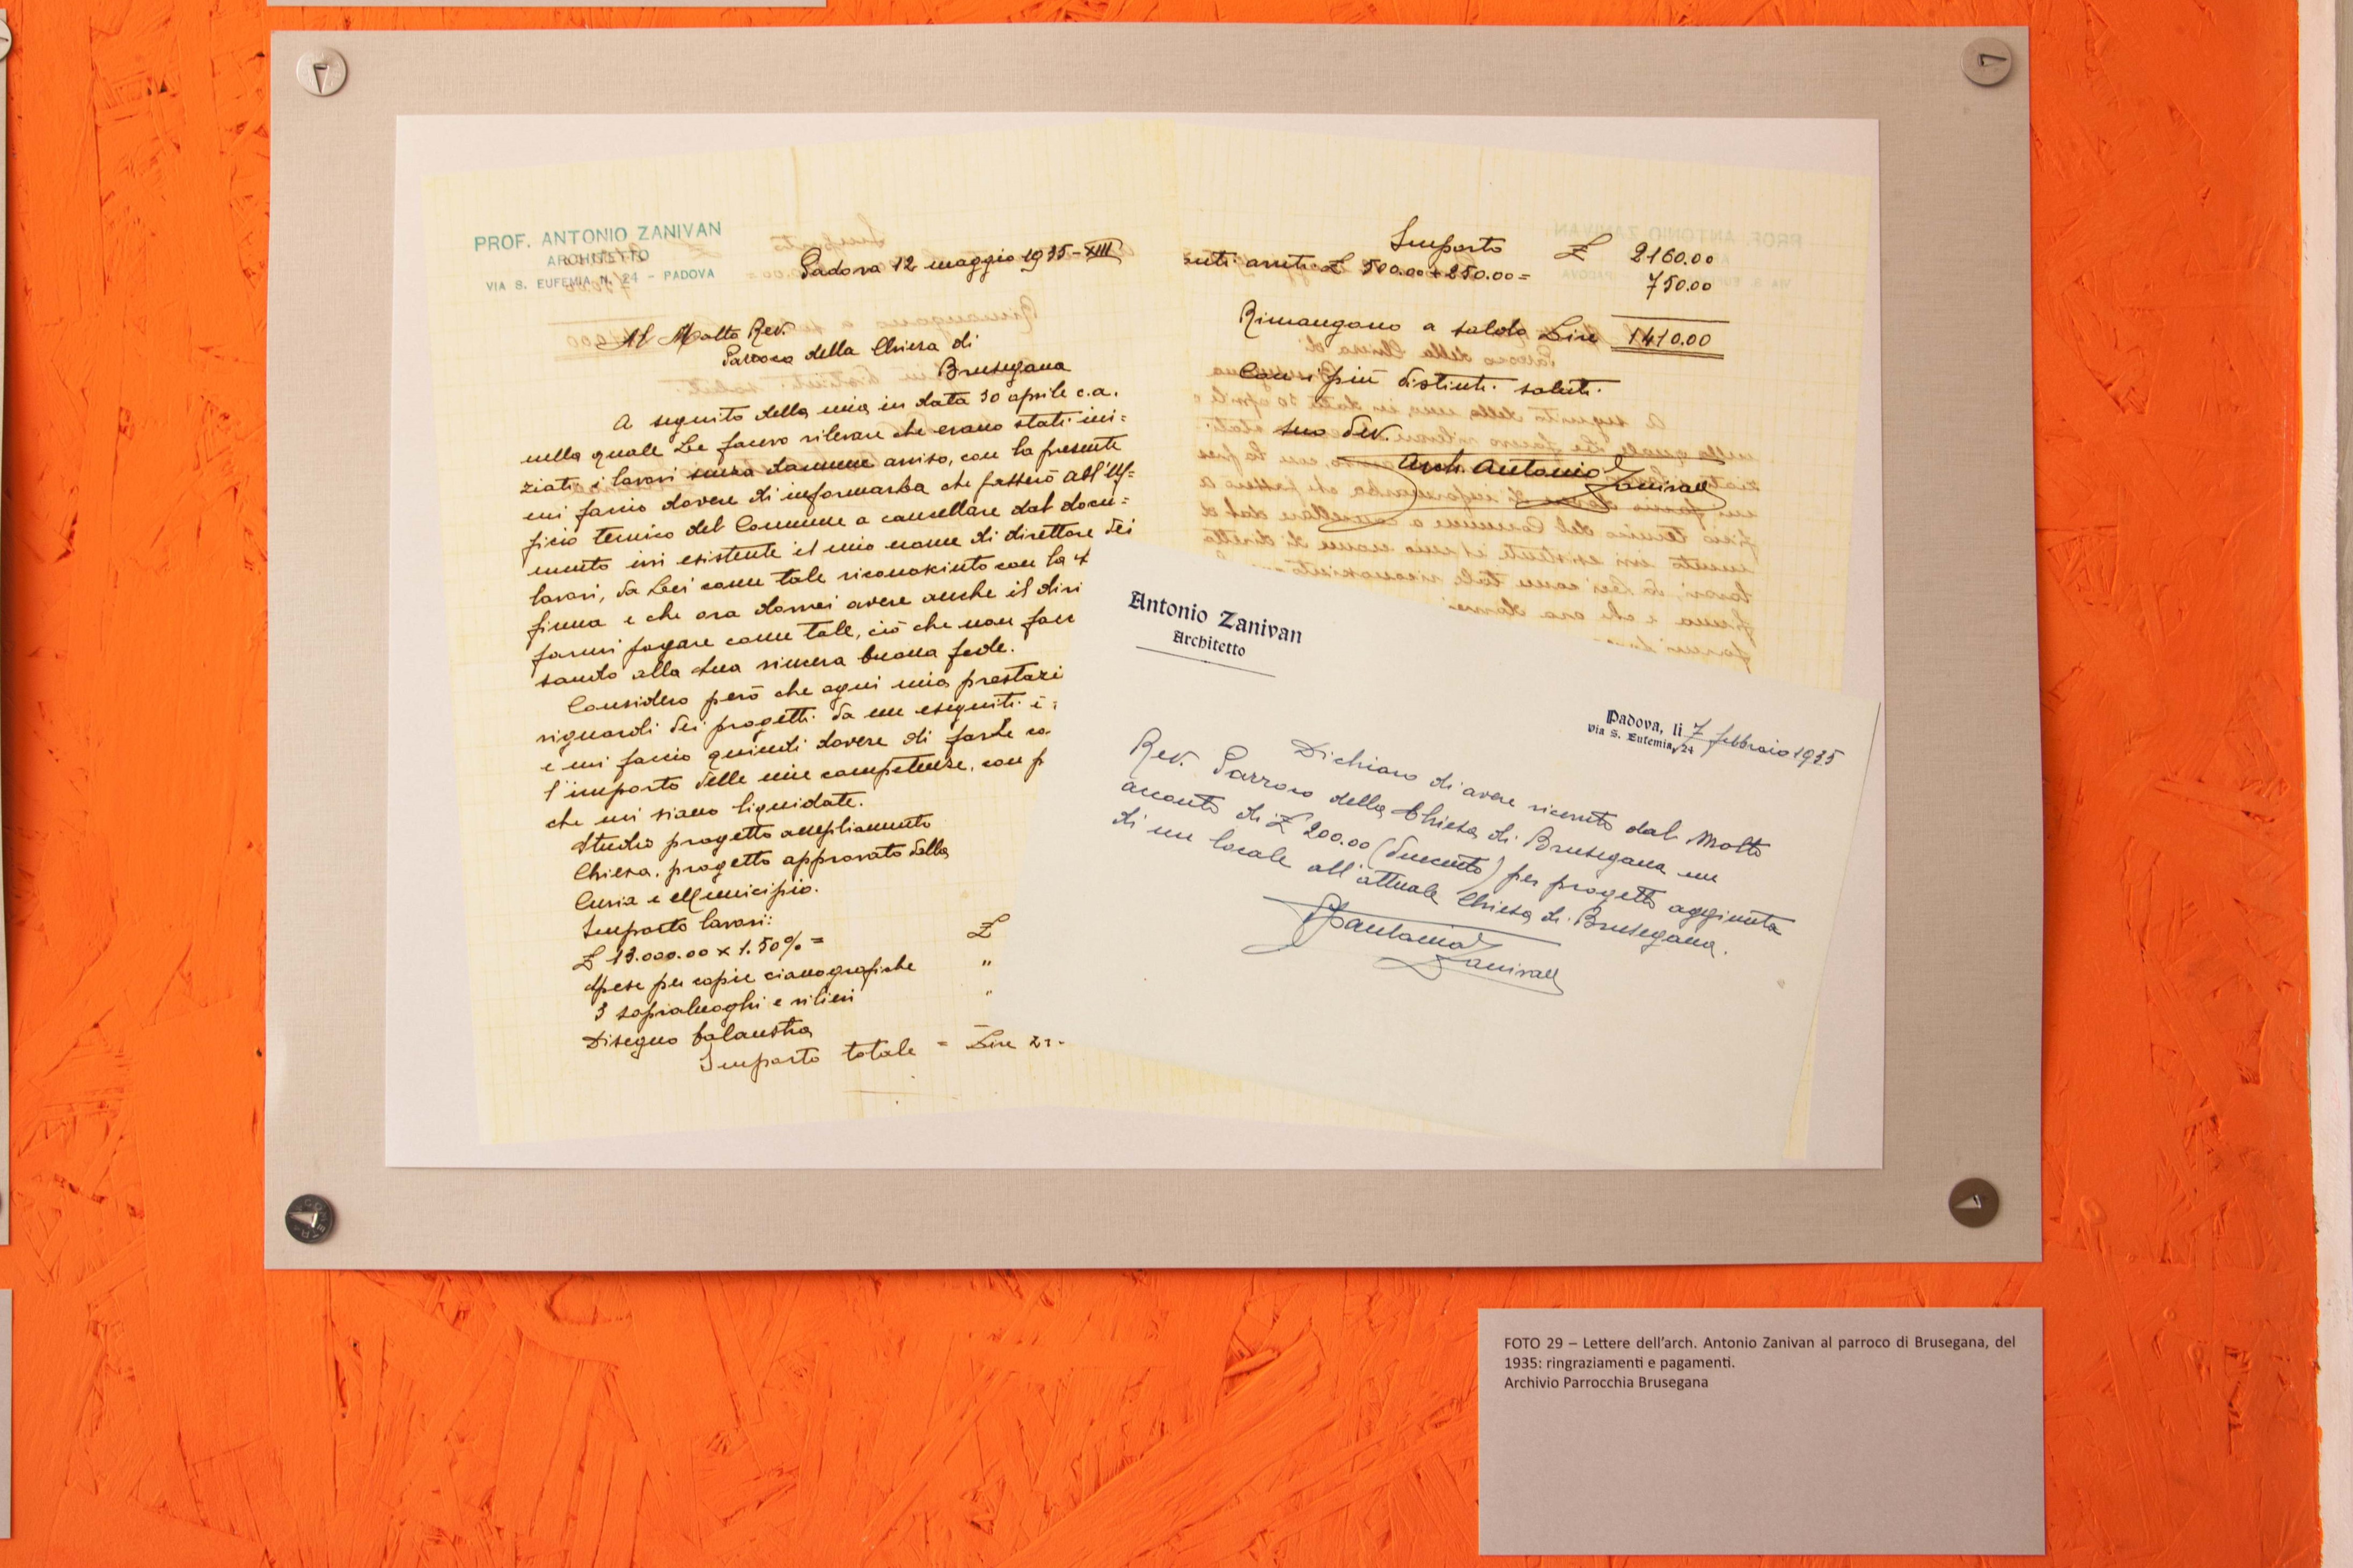 PROF. ANTONIO ZANIVAN
ARCHITETTO
VIA S. EUFEMIA N. 24 - PADOVA
Padova 12 maggio 1935-XIII
Al Molto Rev.
Parroco della Chiesa di
Brusegana
A seguito della mia in data 30 aprile c.a.
nella quale Le facevo rilevare che erano stati ini=
ziati i lavori senza darmene avviso, con la presente
mi faccio dovere di informarLa che passerò all'Uf=
ficio tecnico del Comune a cancellare dal docu=
mento ivi esistente il mio nome di direttore dei
lavori, da Lei come tale riconosciuto con la
firma e che ora dovrei avere anche il diri
farmi pagare come tale, ciò che non facc
sando alla Sua sincera buona fede.
Considero però che ogni mia prestazi
riguardi dei progetti da me eseguiti è
e mi faccio quindi dovere di farLe
l'importo delle mie competenze, con p
che mi siano liquidate.
Studio progetto ampliamento
Chiesa, progetto approvato dalla
Curia e Municipio.
Importo lavori:
£ 13.000.00 x 1.50% = £
Spese per copie cianografiche "
3 sopraluoghi e rilievi "
Disegno balaustra
Importo totale = Lire 21
Importo £ 2160.00
conti avuti £ 500.00+250.00= 750.00
Rimangono a saldo Lire 1410.00
Con i più distinti saluti.
Suo dev.
Arch. Antonio Zanivan
Antonio Zanivan
Architetto
Padova, li 7 febbraio 1935
Via S. Eufemia, 24
Dichiaro di avere ricevuto dal Molto
Rev. Parroco della Chiesa di Brusegana un
acconto di £ 200.00 (duecento) per progetto aggiunta
di un locale all'attuale Chiesa di Brusegana.
Antonio Zanivan
FOTO 29 – Lettere dell'arch. Antonio Zanivan al parroco di Brusegana, del
1935: ringraziamenti e pagamenti.
Archivio Parrocchia Brusegana